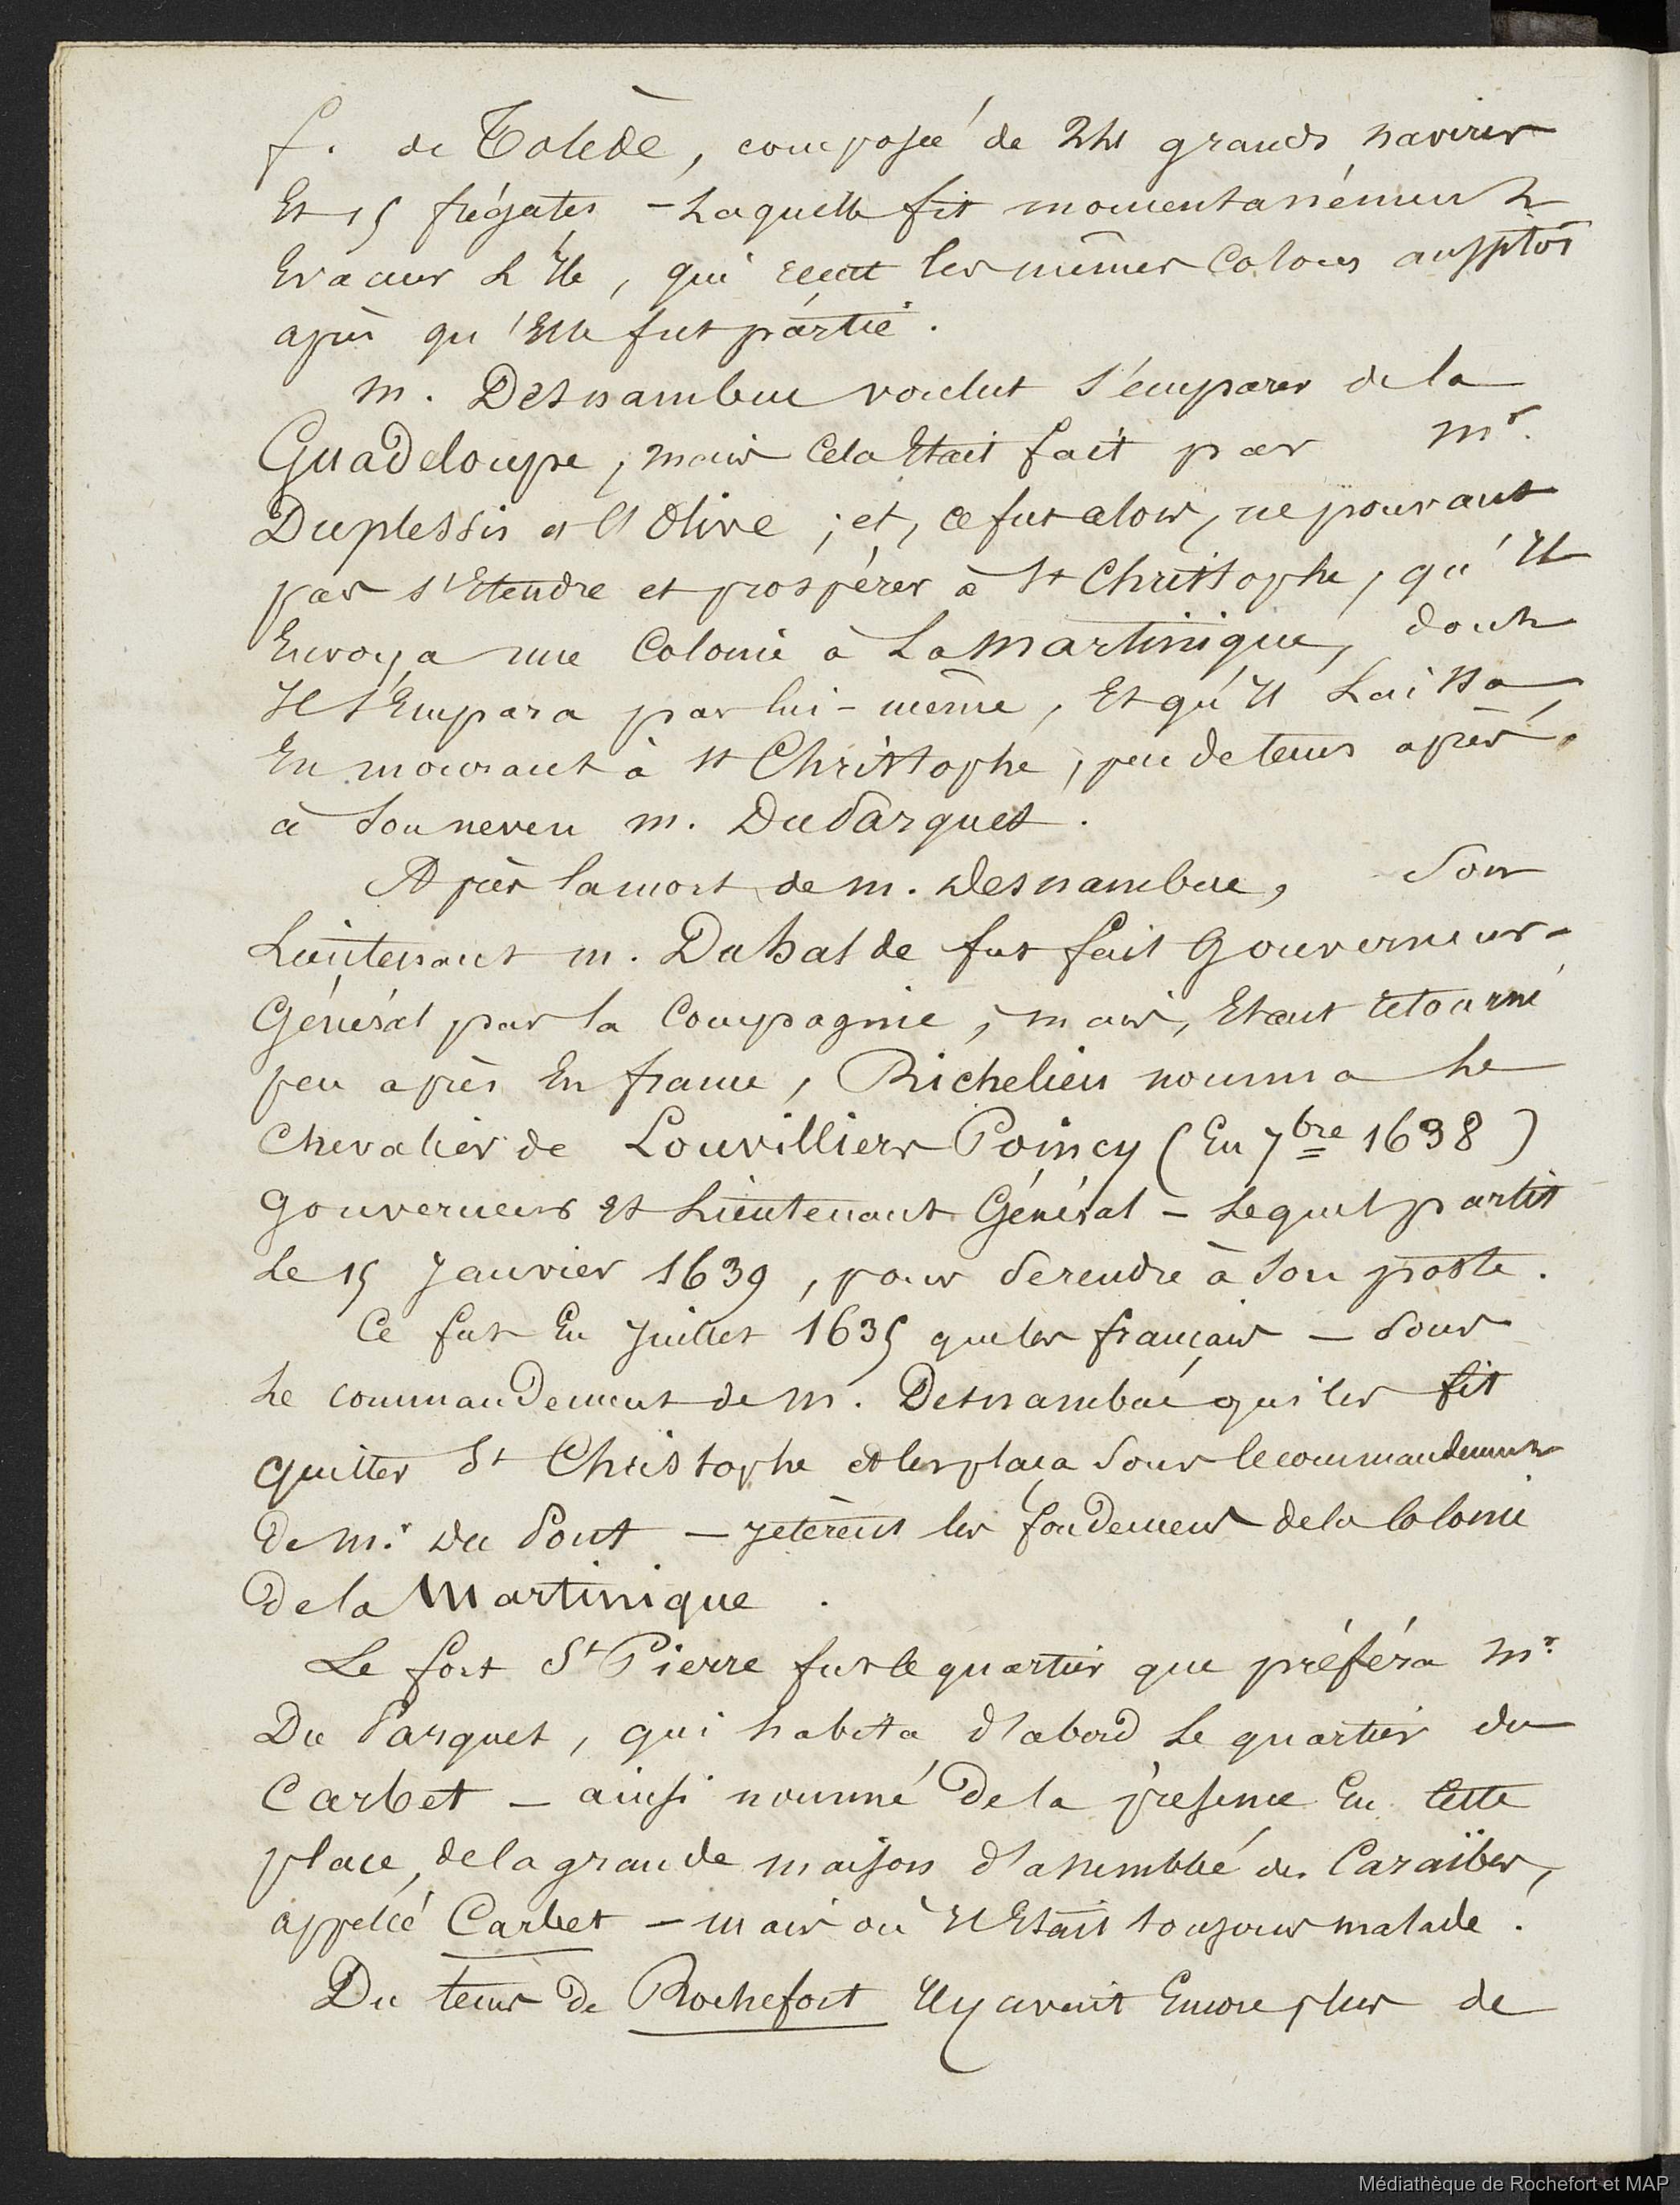 f. de Tolède, composée de 24 grands navires
Et 15 frégates - Laquelle fit momentanément
Evacuer L'Ile, qui reçut les mêmes Colons aussitôt
après qu'Elle fut partie.
M. Desnambuc voulut s'emparer de la
Guadeloupe, mais Cela Etait fait par Mr.
Duplessis et l'Olive ; et, ce fut alors, ne pouvant
pas s'Etendre et prospérer à St Christophe, qu'Il
Envoya une Colonie à La Martinique, dont
Il s'Empara par lui-même, Et qu'Il Laissa,
En mourant à St Christophe, peu de tems après,
à Son neveu M. DuParquet.
Après la mort de M. Desnambuc, Son
Lieutenant M. Duhalde fut fait Gouverneur-
Général par la Compagnie ; mais, Etant retourné
peu après En france, Richelieu nomma Le
Chevalier de Louvilliers Poincy (En 7bre 1638)
Gouverneur Et Lieutenant Général - Lequel partit
Le 15 Janvier 1639, pour Se rendre à Son poste.
Ce fut En Juillet 1635 que les français - Sous
Le commandement de M. Desnambuc qui les fit
quitter St Christophe et les plaça Sous le commandement
de Mr. Du Pont - jetèrent les fondemens de la Colonie
de la Martinique.
Le fort St Pierre fut le quartier que préféra Mr.
Du Parquet, qui habita d'abord Le quartier du
Carbet - ainsi nommé de la présence En Cette
place, de la grande maison d'assemblée des Caraïbes,
appelée Carbet - mais où Il Etait toujours malade.
Du tems de Rochefort Il y avait Encore plus de
Médiathèque de Rochefort et MAP